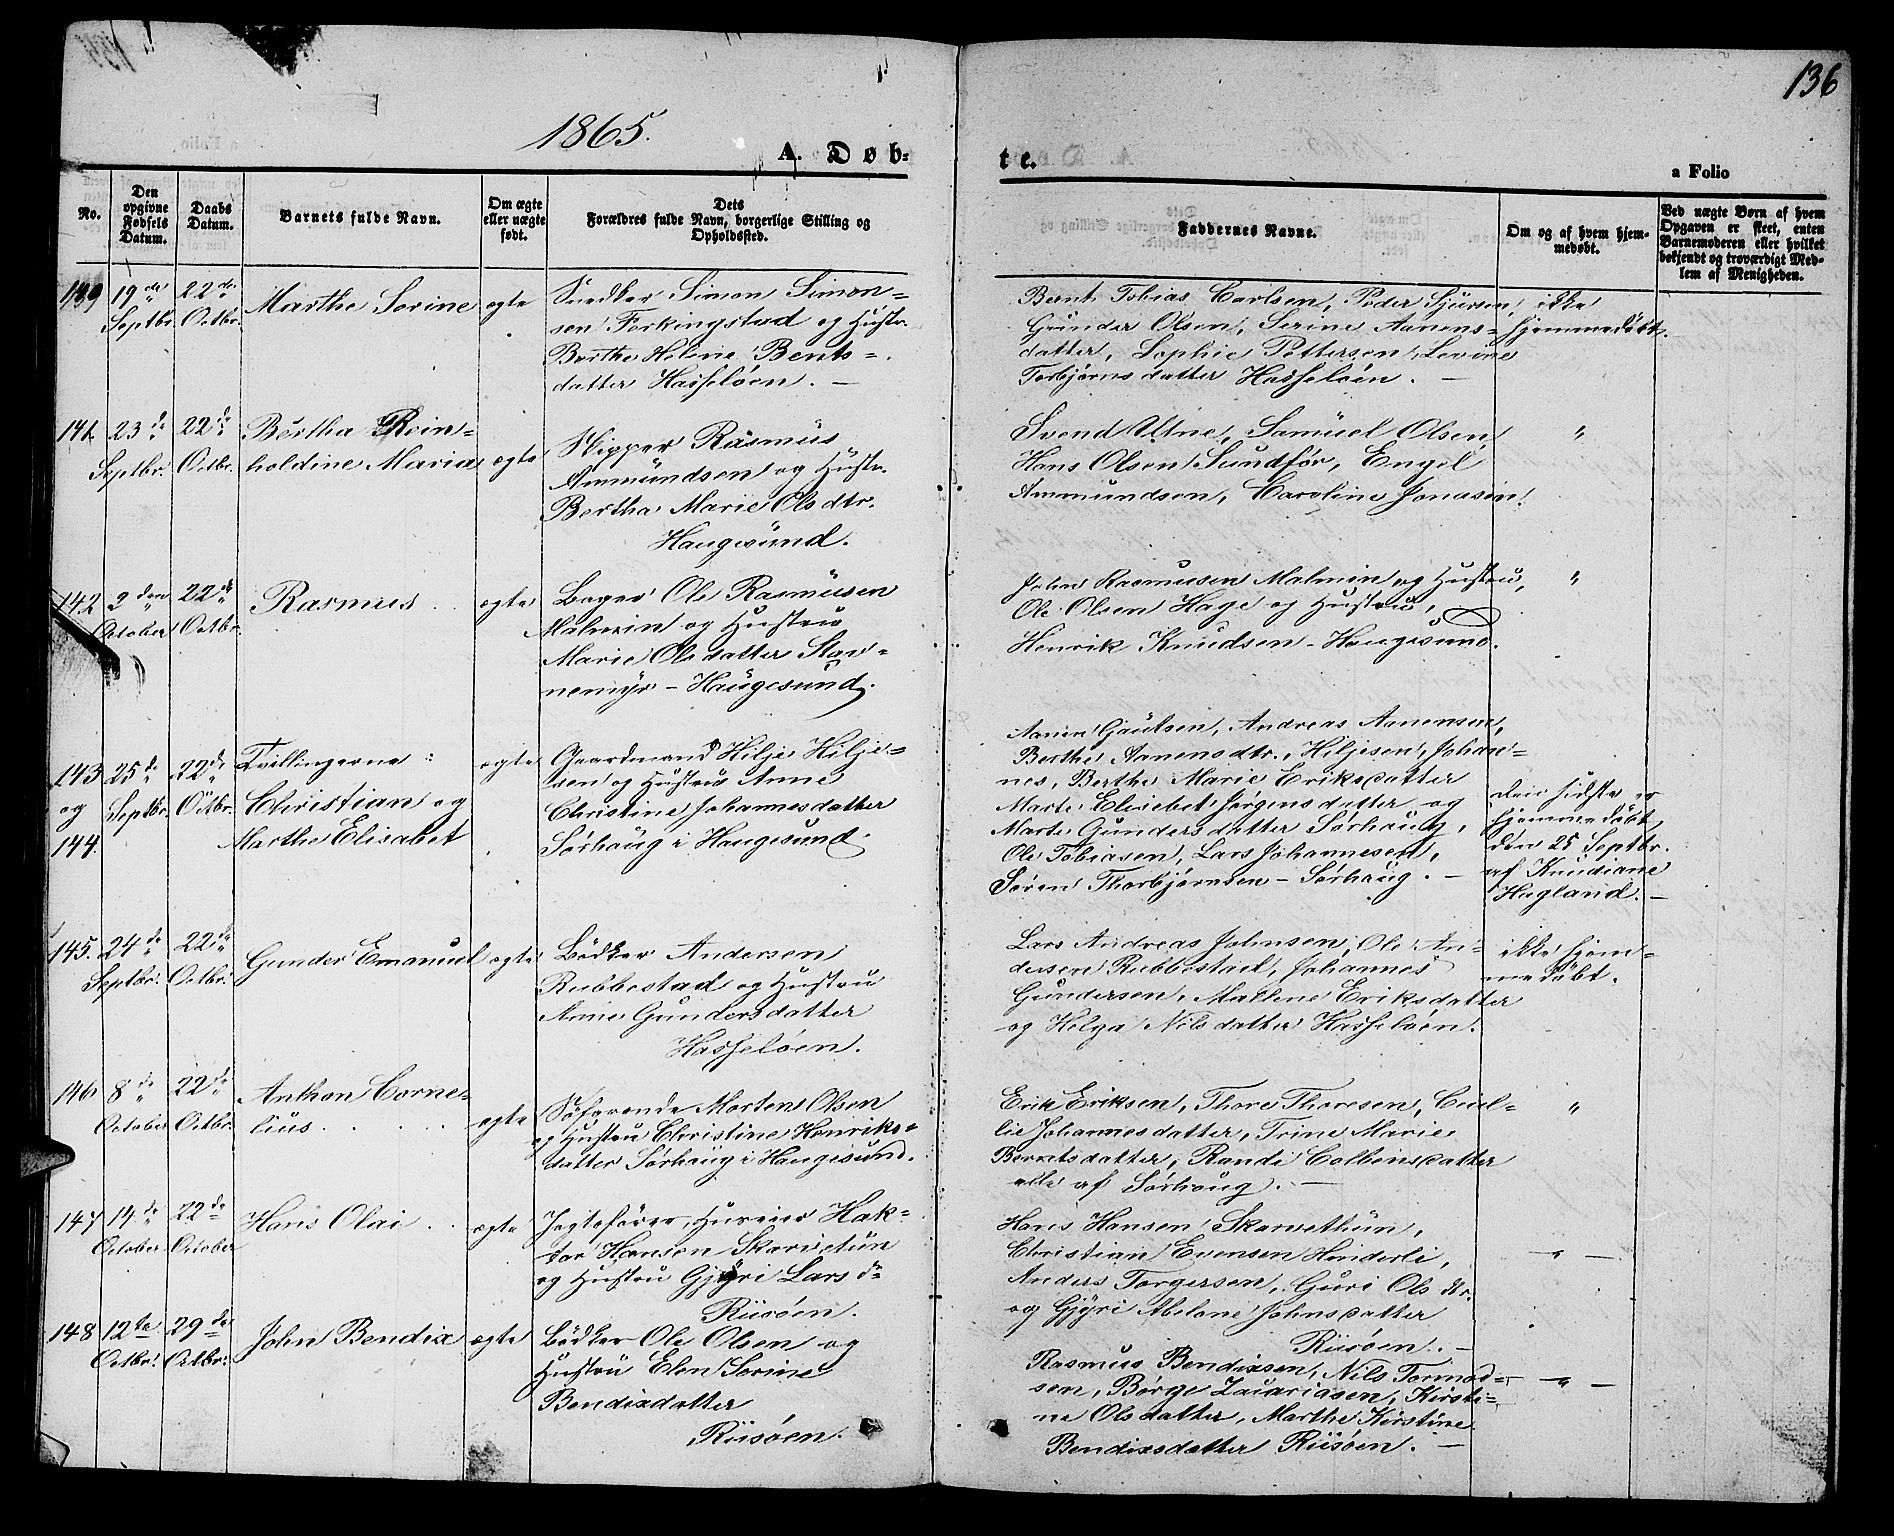 136
1865.
A. Døb-
te.
a Folio
No.
Den opgivne Fødsels Datum.
Daabs Datum.
Barnets fulde Navn.
Om ægte eller uægte født.
Dets Forældres fulde Navn, borgerlige Stilling og Opholdssted.
Faddernes Navne.
Om og af hvem hjemmedøbt.
Ved uægte Børn af hvem Opgaven er skeet, enten Barnemoderen eller hvilket bekjendt og troværdigt Medlem af Menigheden.
19de Septbr.
22de Octbr.
Marthe Serine
ægte
Snedker Simon Simon-
sen Ferkingstad og Hustr.
Berthe Helene Bents-
datter Hasseløen. —
Bernt Tobias Carlsen, Peder Sjursen,
Gunder Olsen, Serine Aanens-
datter, Sophie Pettersen, Levine
Torbjørnsdatter Hasseløen. —
ikke
hjemmedøbt.
141.
23de Septbr.
22de Octbr.
Bertha Rein-
holdine Maria
ægte
Skipper Rasmus
Ammundsen og Hustr.
Bertha Marie Olsdtr.
Haugesund.
Svend Utne, Samuel Olsen,
Hans Olsen Sundfør, Engel
Ammundsen, Caroline Jonasen.
"
142
2den October
22de Octbr.
Rasmus
ægte
Bager Ole Rasmusen
Malmin og Hustru
Marie Olsdatter Stav-
nemyr - Haugesund.
John Rasmusen Malmin og Hustru,
Ole Olsen Hage og Hustru,
Henrik Knudsen - Haugesund.
"
143
og
144.
25de Septbr.
22de Octbr.
Tvillingerne:
Christian og
Marthe Elisabet
ægte
Gaardmand Hilje Hilje-
sen og Hustru Anne
Christine Johannesdatter
Sørhaug i Haugesund.
Aanen Gautsen, Andreas Aanensen,
Berthe Aanensdtr., Hiljesen, Johan-
nes, Berthe Marie Eriksdatter
Marte Elisebet Jørgensdatter og
Marte Gundersdatter Sørhaug,
Ole Tobiasen, Lars Johannesen,
Søren Thorbjørnsen - Sørhaug. —
den sidste er
hjemmedøbt
den 25 Septbr.
af Knudiane
Hagland. —
145.
24de Septbr.
22de Octbr.
Gunder Emanuel
ægte
Bødker Andersen
Rubbestad og Hustru
Anne Gundersdatter
Hasseløen.
Lars Andreas Johnsen, Ole An-
dersen Rubbestad, Johannes
Gundersen, Mallene Eriksdatter
og Helga Nilsdatter Hasseløen.
ikke hjem-
medøbt.
146
8de October
22de Octbr.
Anthon Corne-
lius.
ægte
Søfarende Mortens Olsen
og Hustru Christine Henriks-
datter Sørhaug i Haugesund.
Erik Eriksen, Thore Thoresen, Ceci-
lie Johannesdatter, Trine Marie
Berentsdatter, Randi Colbensdatter
alle af Sørhaug. —
"
147
14de October
22de October
Hans Olai
ægte
Jagtefører, Huseier Hak-
tor Hansen Skarvetun
og Hustru Gjøri Larsdr
Riisøen.
Hans Hansen Skarvethun,
Christian Evensen Hinderli,
Anders Torgersen, Guri Olsdtr.
og Gjøri Abelone Johnsdatter
Riisøen. —
" —
148
12te Octbr.
29de Octbr.
John Bendix
ægte
Bødker Ole Olsen og
Hustru Elen Serine
Bendixdatter
Riisøen.
Rasmus Bendixsen, Nils Tormod-
sen, Børge Zacariasen, Kirsti-
ne Olsdatter, Marthe Kirstine
Bendixsdatter Riisøen. —
— " —